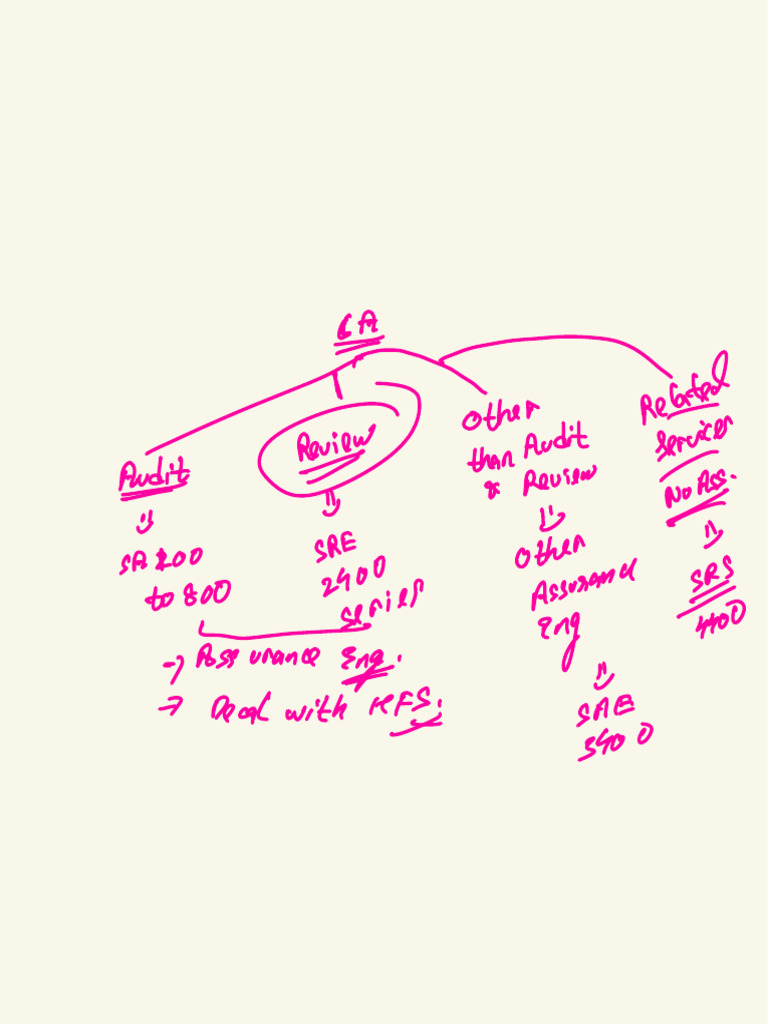 CA
Audit
SA 200
to 800
Review
SRE
2400
series
→ Assurance Eng.
→ Deal with HFS.
Other
than Audit
& Review
Other
Assurance
Eng
SAE
3400
Related
Services
No Ass.
SRS
4400